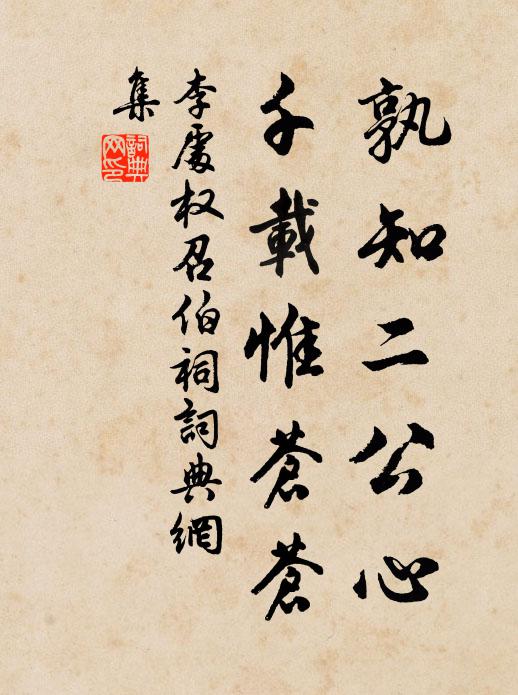 孰知二公心
千載惟蒼蒼
李處权召伯祠詞典網
集
詞典
网印